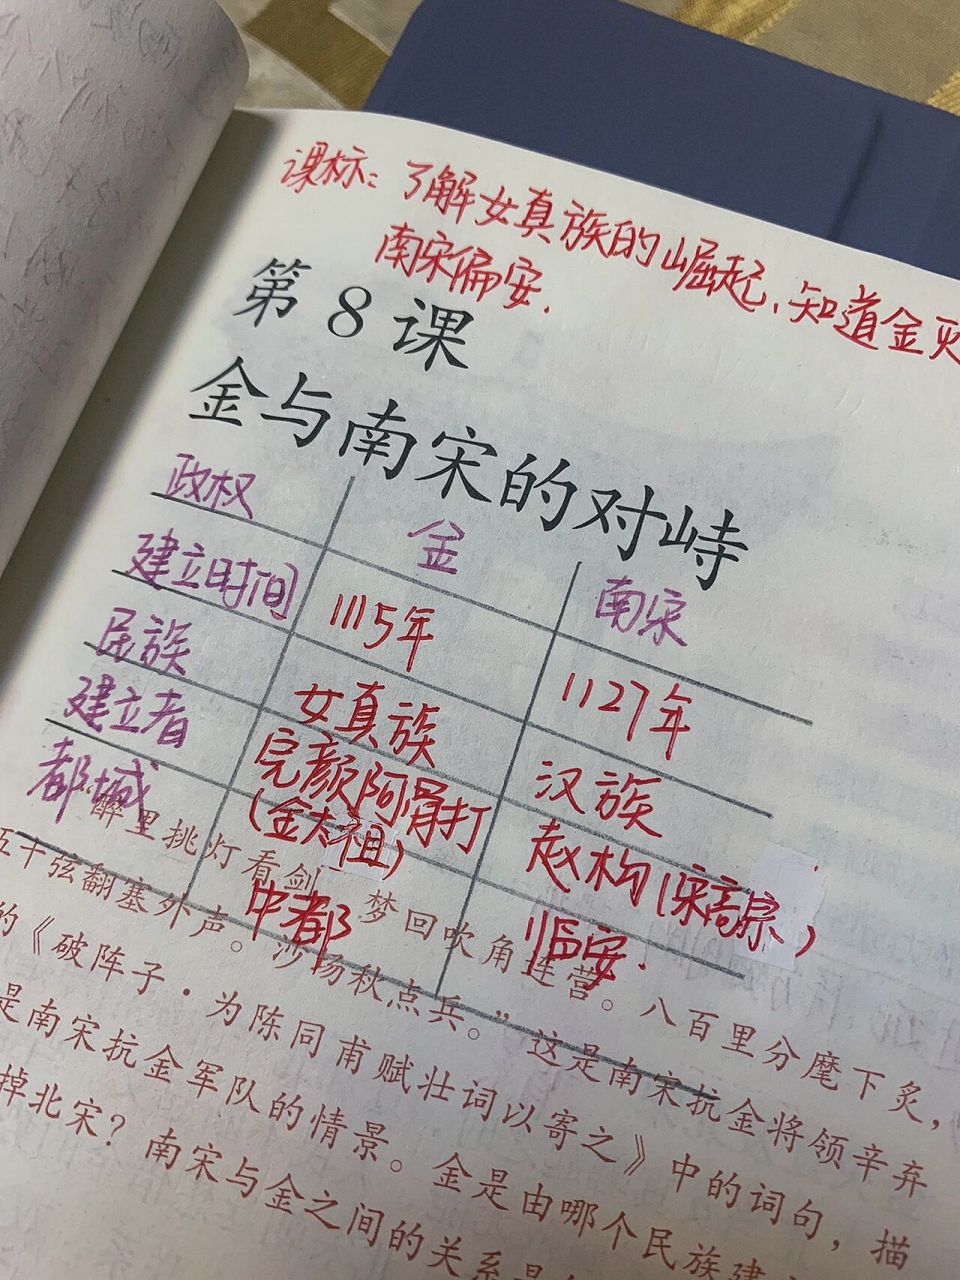 课标：了解女真族的崛起、知道金灭
南宋偏安.
第8课
金与南宋的对峙
政权 金 南宋
建立时间 1115年 1127年
民族 女真族 汉族
建立者 完颜阿骨打（金太祖） 赵构（宋高宗）
都城 中都 临安.
“醉里挑灯看剑 梦回吹角连营。八百里分麾下炙，
五十弦翻塞外声。沙场秋点兵。”这是南宋抗金将领辛弃
的《破阵子·为陈同甫赋壮词以寄之》中的词句，描
是南宋抗金军队的情景。金是由哪个民族建
掉北宋？南宋与金之间的关系是